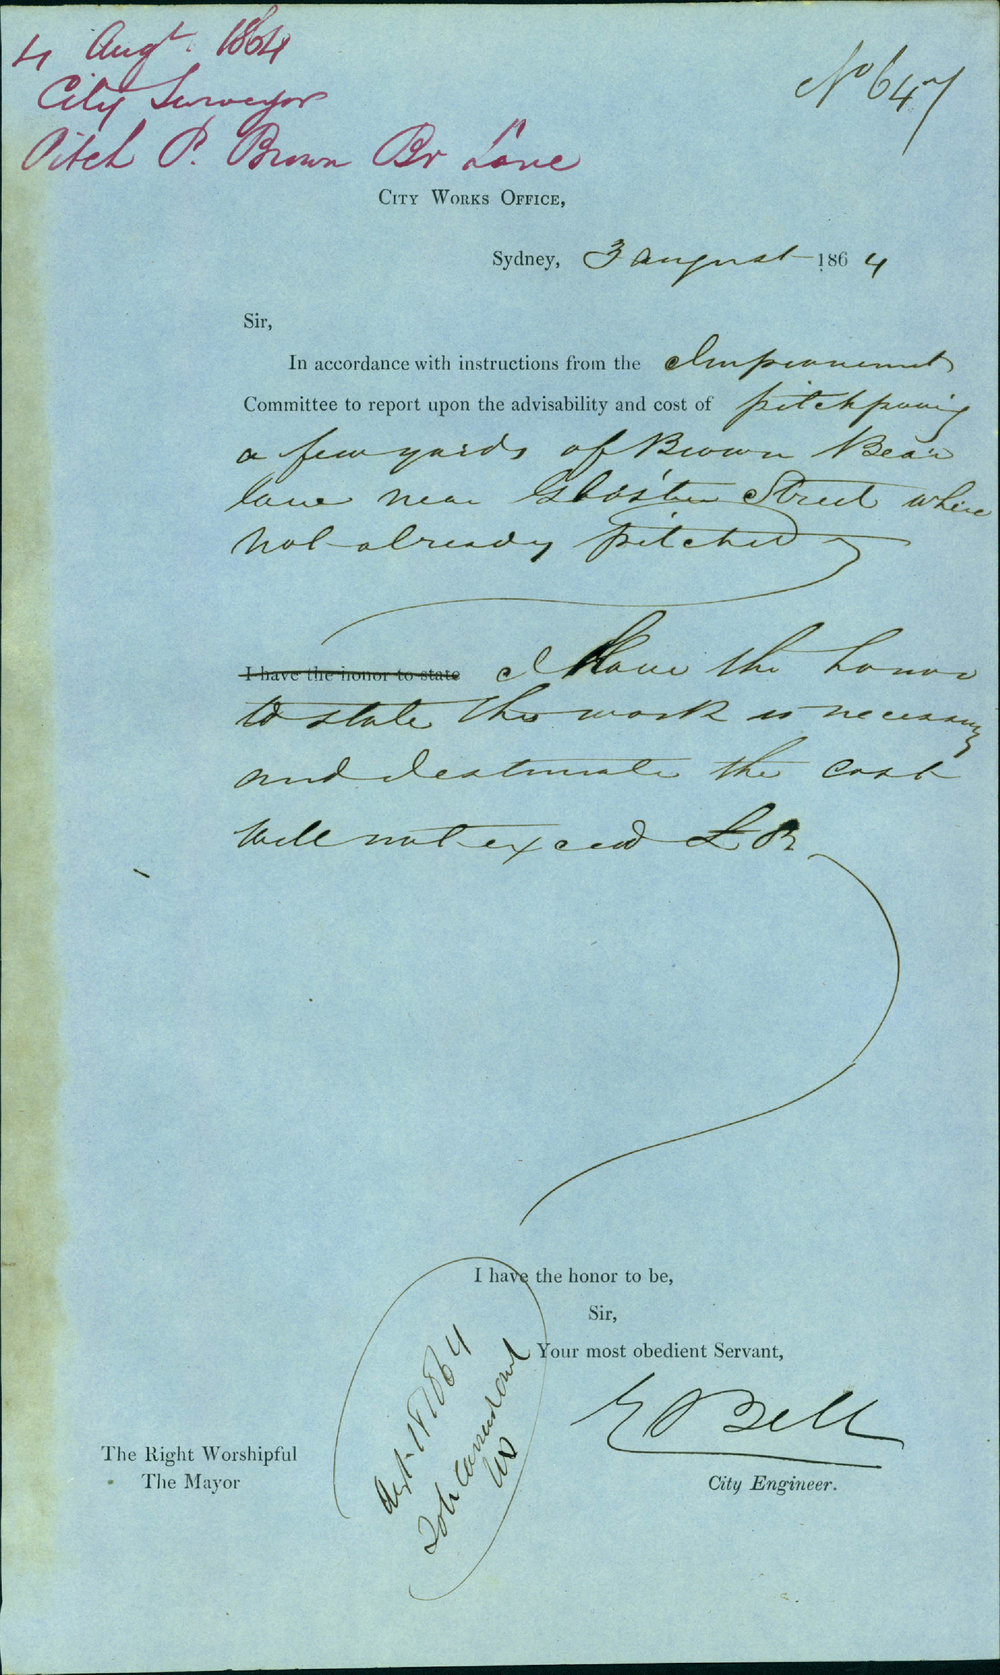 4 Augt. 1864
City Surveyor
Pitch P. Brown Br Lane
No 647
City Works Office,
Sydney, 3 August 1864
Sir,
In accordance with instructions from the Improvement
Committee to report upon the advisability and cost of pitchpaving
a few yards of Brown Bear
lane near Glos'ter Street where
not already pitched
I have the honor to state I Have the honor
to state the work is necessary
and I estimate the cost
will not exceed £
I have the honor to be,
Sir,
Your most obedient Servant,
E Bell
City Engineer.
The Right Worshipful
The Mayor
1864
To be carried out